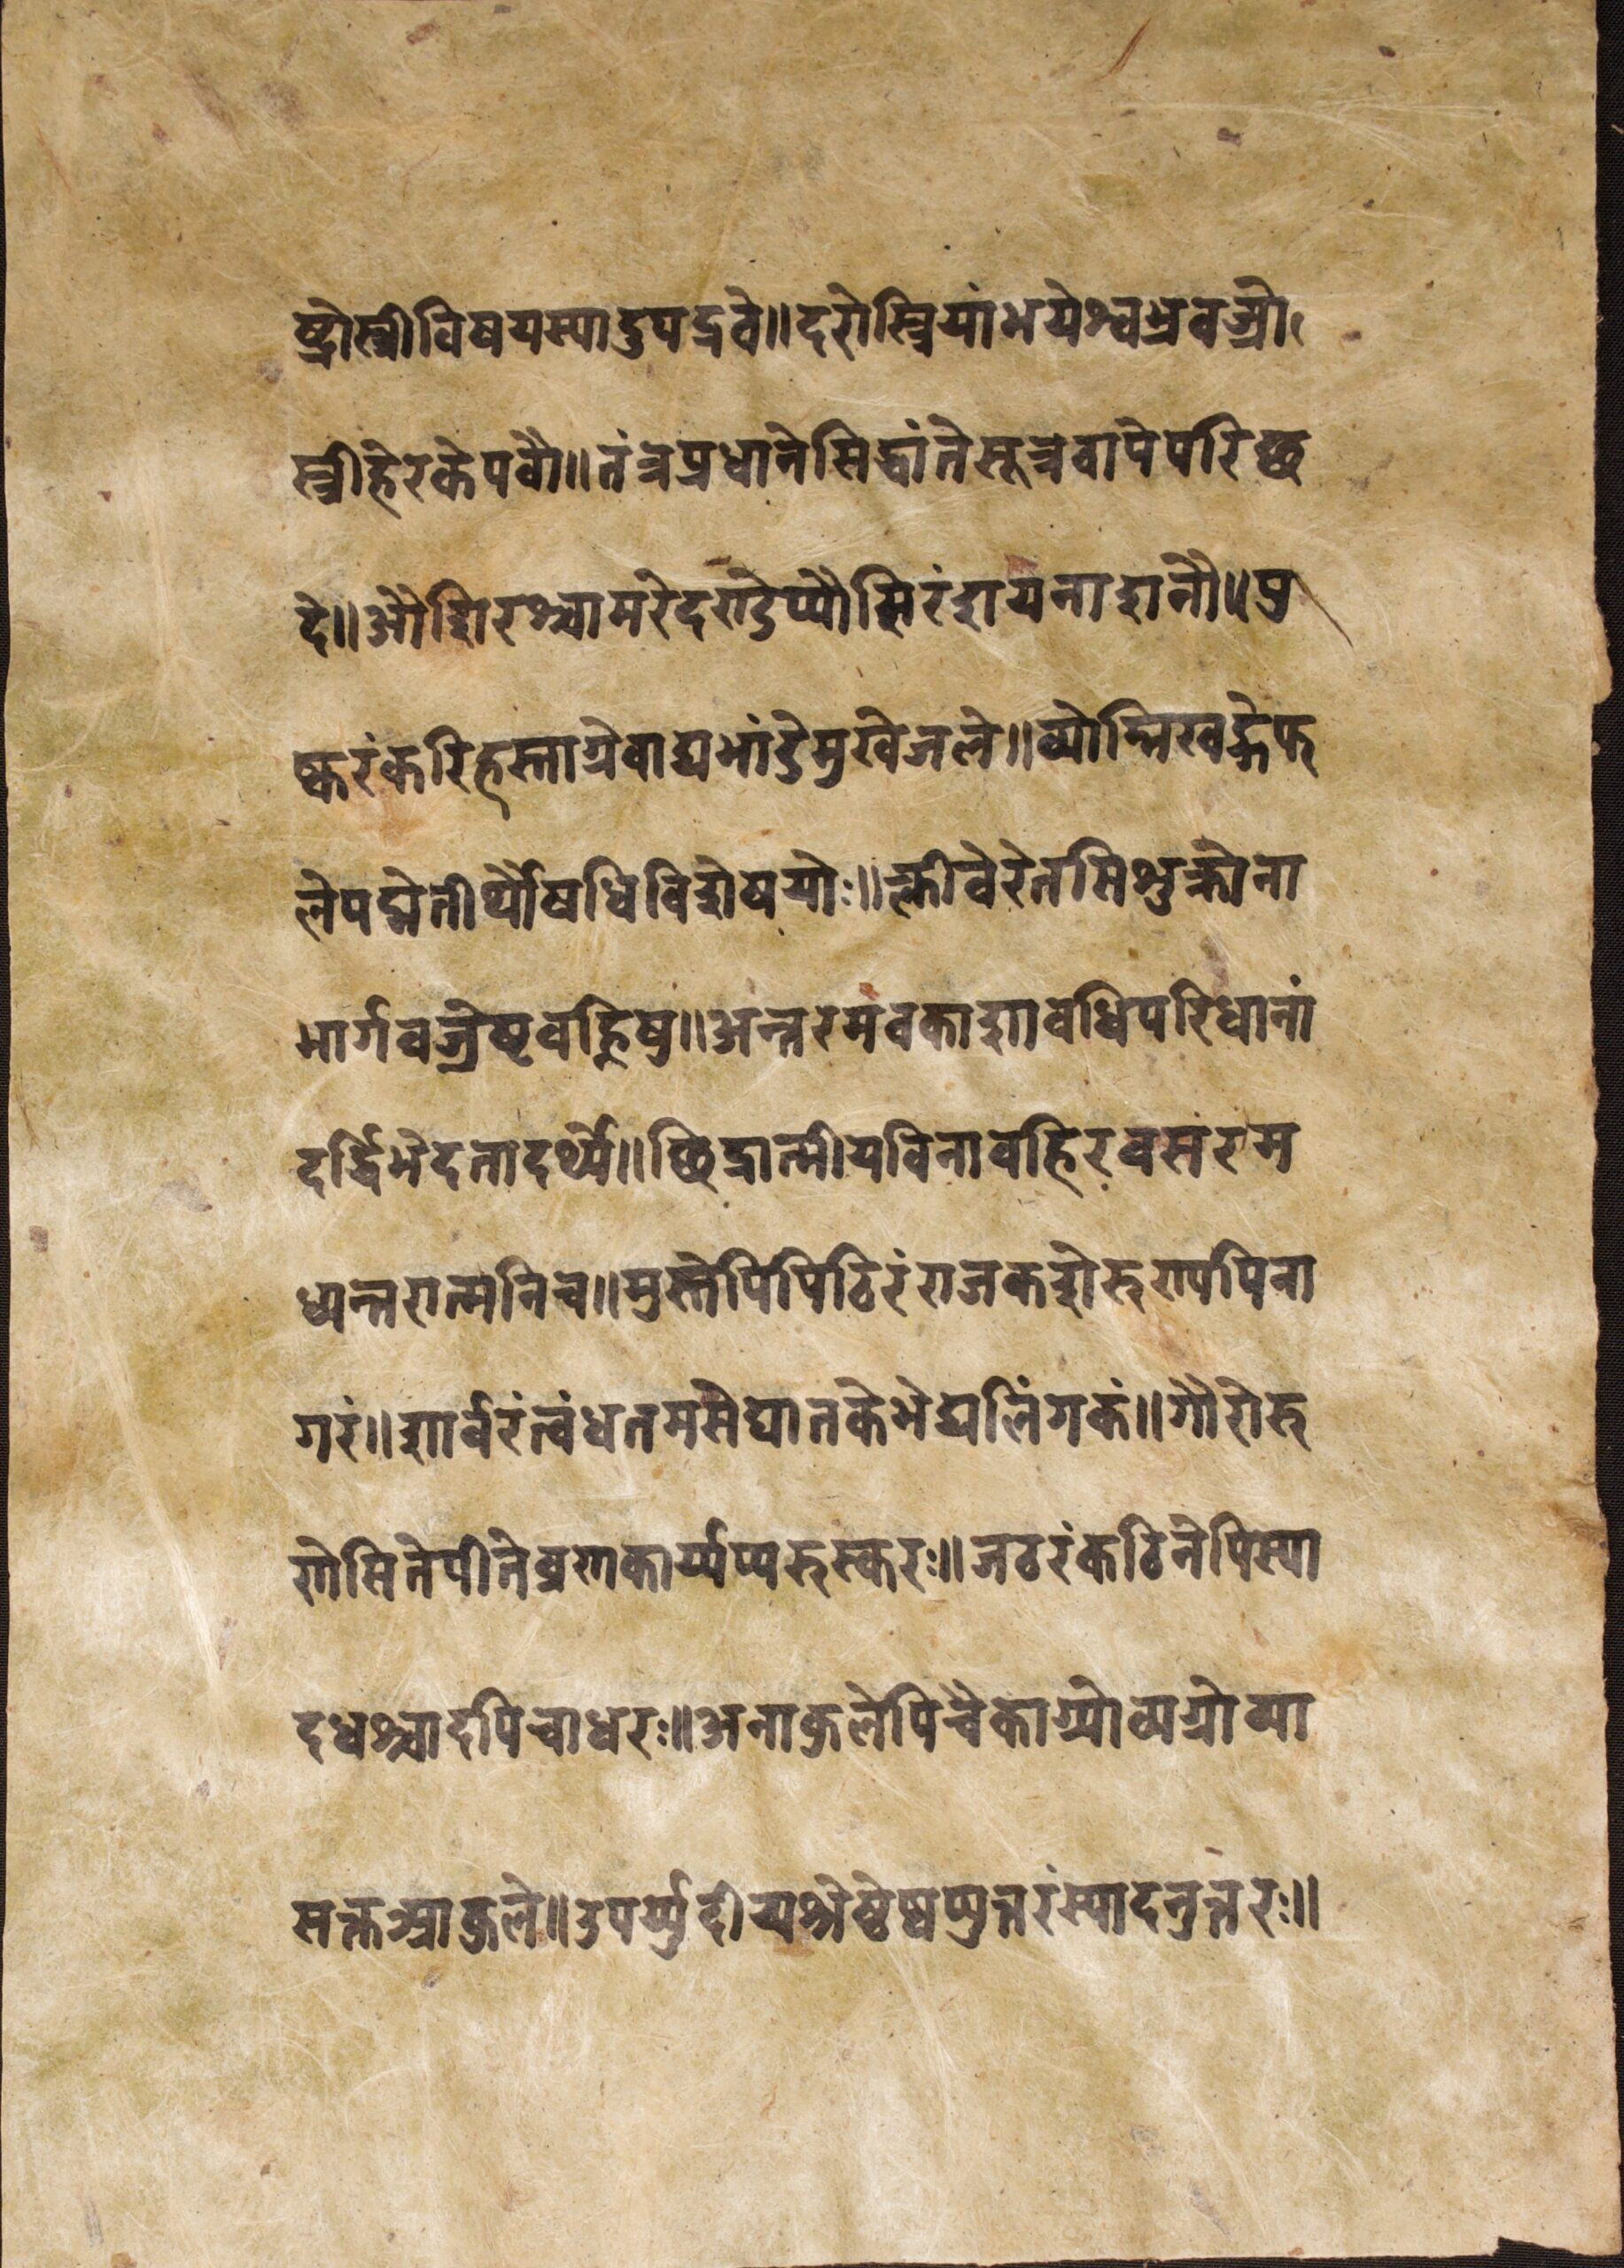 ष्ट्रोस्त्रीविषयस्यादुपद्रवे॥दरोस्त्रियांभयेश्वभ्रवज्रो
स्त्रीहेरकेपवौ॥तंत्रप्रधानेसिद्धांतेसूत्रवापेपरिछ
दे॥औशिरश्चामरेदराडेप्यौसिरंशयनाशनौ॥पु
ष्करंकरिहस्ताग्रेवाद्यभांडेमुखेजले॥व्योम्निखड्गेफ
लेपद्मेतीर्थौषधिविशेषयोः॥क्लीवेरेतसिशुक्रोना
भार्गवज्रेष्टवह्निषु॥अन्तरमवकाशावधिपरिधानां
दर्द्धिभेदतादर्थ्ये॥छिद्रात्मीयविनावहिरवसरम
ध्यन्तरात्मनिच॥मुस्तेपिपिठिरंराजकशेरुराापपिना
गरं॥शार्वरंत्वंधतमसेघातकेभेद्यलिंगकं॥गौरोरु
राोसितेपीतेव्रराकार्य्यप्यरुस्करः॥जठरंकठिनेपिस्या
दधश्चादपिचाधरः॥अनाकुलेपिचैकाग्र्योव्यग्रोव्या
सक्तआकुले॥उपर्य्युदीच्यश्रेष्ठेष्वप्युत्तरंस्यादनुत्तरः॥